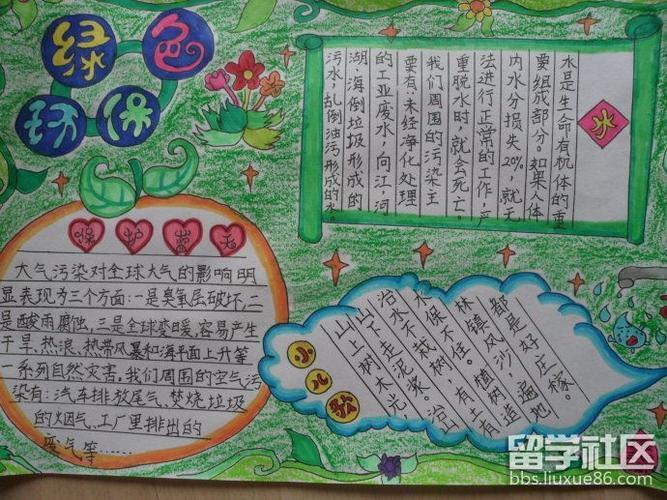 绿色
环保
水
水是生命有机体的重
要组成部分。如果人体
内水分损失20%,就无
法进行正常的工作,严
重脱水时,就会死亡。
我们周围的污染主
要有:未经净化处理
的工业废水,向江、河
湖海倒垃圾形成的
污水,乱倒油污形成的
保护蓝天
大气污染对全球大气的影响明
显表现为三个方面:一是臭氧层破坏,二
是酸雨腐蚀,三是全球变暖,容易产生
干旱、热浪、热带风暴和海平面上升等
一系列自然灾害。我们周围的空气污
染有:汽车排放尾气、焚烧垃圾
的烟气、工厂里排出的
废气等……
小儿歌
山上树木光,
山下走泥浆。治山
治水不栽树,有土
水保不住。植树造
林镇风沙,遍地
都是好庄稼。
留学社区
bbs.liuxue86.com